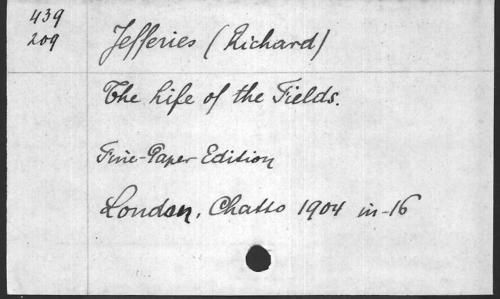 439
209
Jefferies (Richard)
The Life of the Fields.
Fine-Paper Edition
London, Chatto 1904 in-16